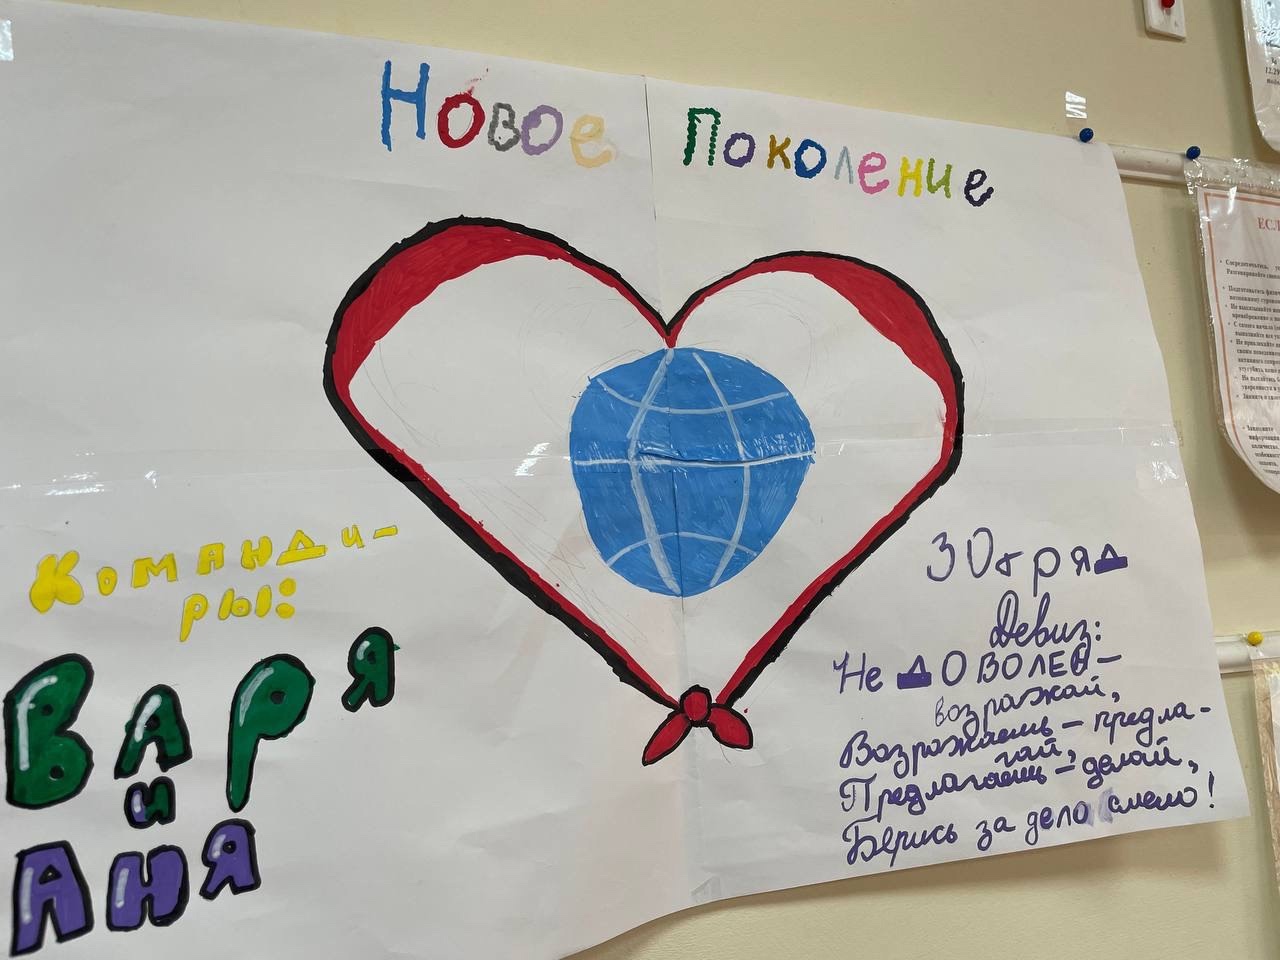 Новое Поколение
Командиры:
Варя
и
Аня
3 Отряд
Девиз:
Не ДОВОЛЕН-
возражай,
Возражаешь - предла-
гай,
Предлагаешь - делай,
Берись за дело смело!
ЕСЛ